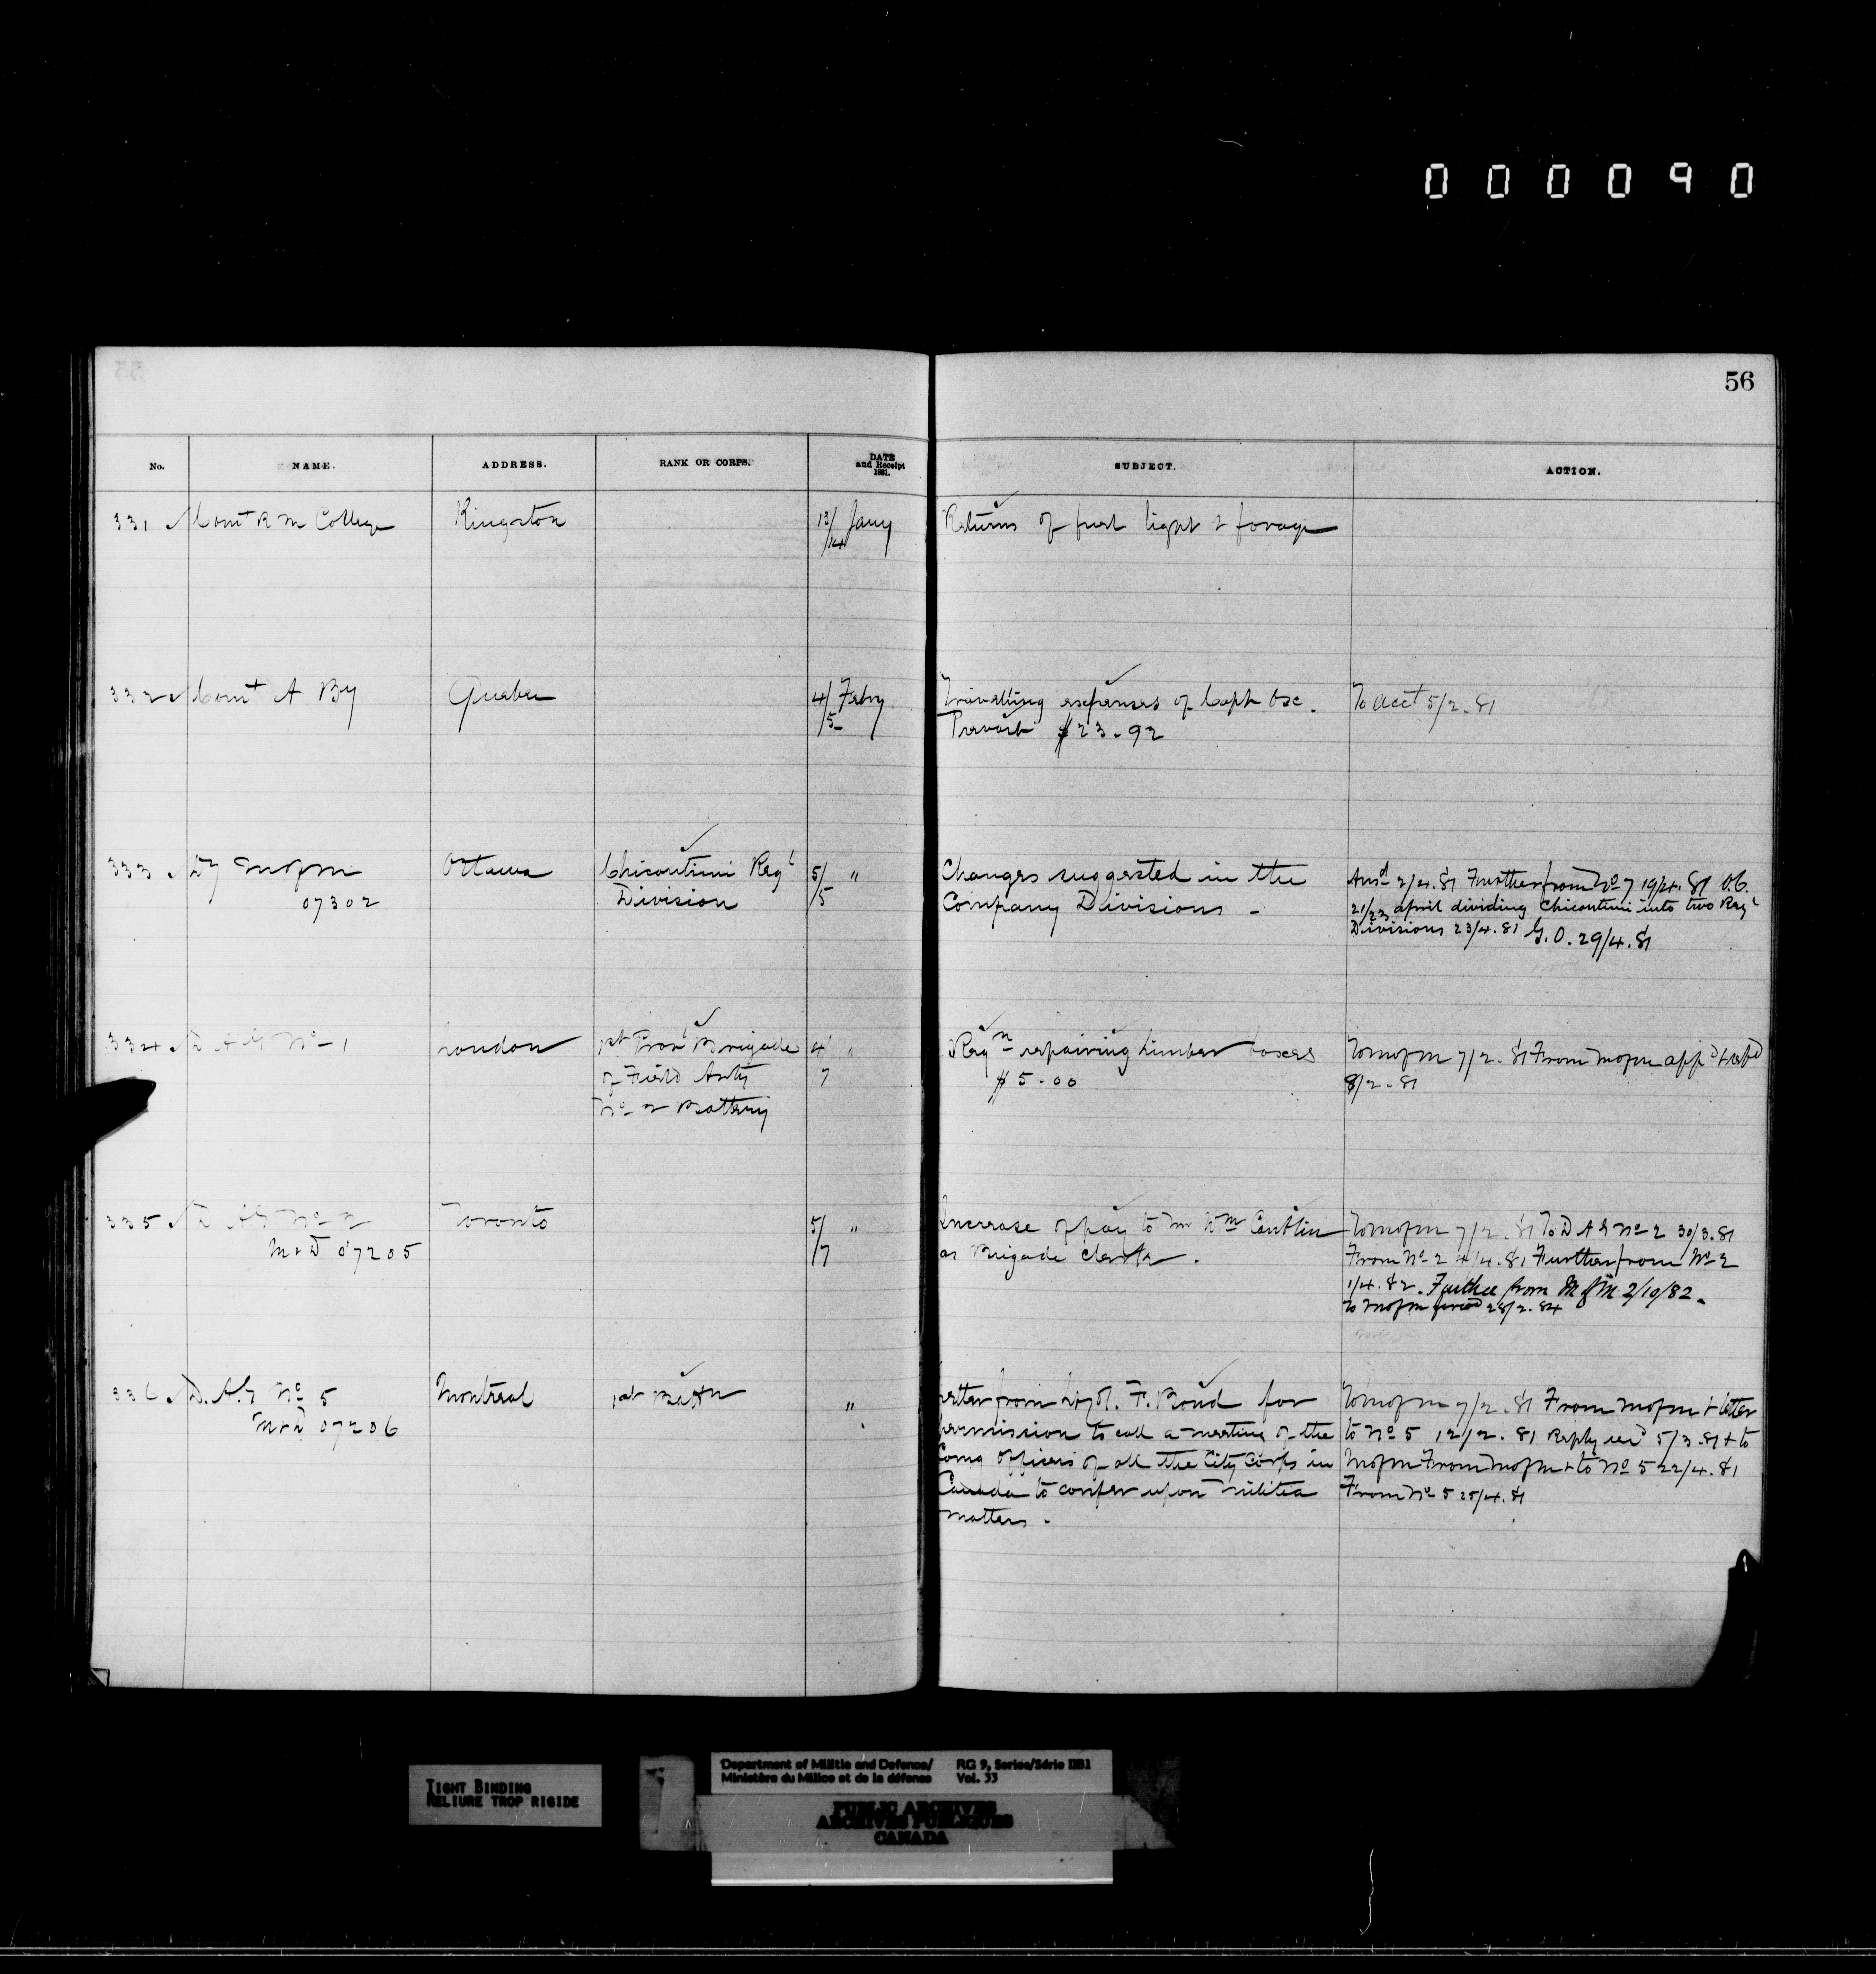 000090
56
No. NAME. ADDRESS. RANK OR CORPS. DATE and Receipt 1881. SUBJECT. ACTION.
331 Comt R M College Kingston 13/14 Jany Returns of fuel light & forage
332 Comt A By Quebec 4/5 Febry. Travelling expenses of Capt Osc. To acct 5/2.81
Prevost $23.92
333 Dy M of M Ottawa Chicoutimi Regl 5/5 " Changes suggested in the Ansd 2/4.81 Further from No 7 19/4.81 O.C.
07302 Division Company Divisions - 21/23 april dividing Chicoutimi into two Regl
Divisions 23/4.81 G.O. 29/4.81
334 D A G No 1 London 1st Provl Brigade 4/7 " Reqn repairing limber boxes To M of M 7/2.81 From M of M appd
of Field Arty $5.00 8/2.81
No 2 Battery
335 D A G No 2 Toronto 5/7 " Increase of pay to Mr Wm To M of M 7/2.81 To D A G No 2 30/3.81
M & D 07205 as Brigade Clerk. From No 2 4/4.81 Further from No 2
1/4.82. Further from M of M 2/10/82.
to M of M 28/2.84
336 D.A.G No 5 Montreal 1st Battn " Letter from Lt Col. F. Bond for To M of M 7/2.81 From M of M & letter
M & D 07206 permission to call a meeting of the to No 5 12/2.81 Reply recd 5/3.81 & to
Comg Officers of all the City Corps in M of M From M of M & to No 5 22/4.81
Canada to confer upon militia From No 5 25/4.81
matters.
TIGHT BINDING
RELIURE TROP RIGIDE
Department of Militia and Defence/ RG 9, Series/Série IIB1
Ministère du Milice et de la défense Vol. 33
PUBLIC ARCHIVES
ARCHIVES PUBLIQUES
CANADA